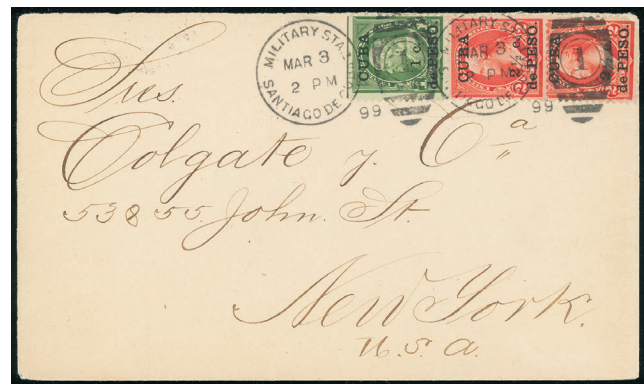 MILITARY STA.
MAR 3
2 PM
SANTIAGO DE
99
CUBA
1 c.
de PESO.
MILITARY STA
MAR 3
PM
99
CUBA
2½ c.
de PESO.
CUBA
de PESO.
Srs.
Colgate y Ca
53 & 55 John. St.
New York.
U.S.A.